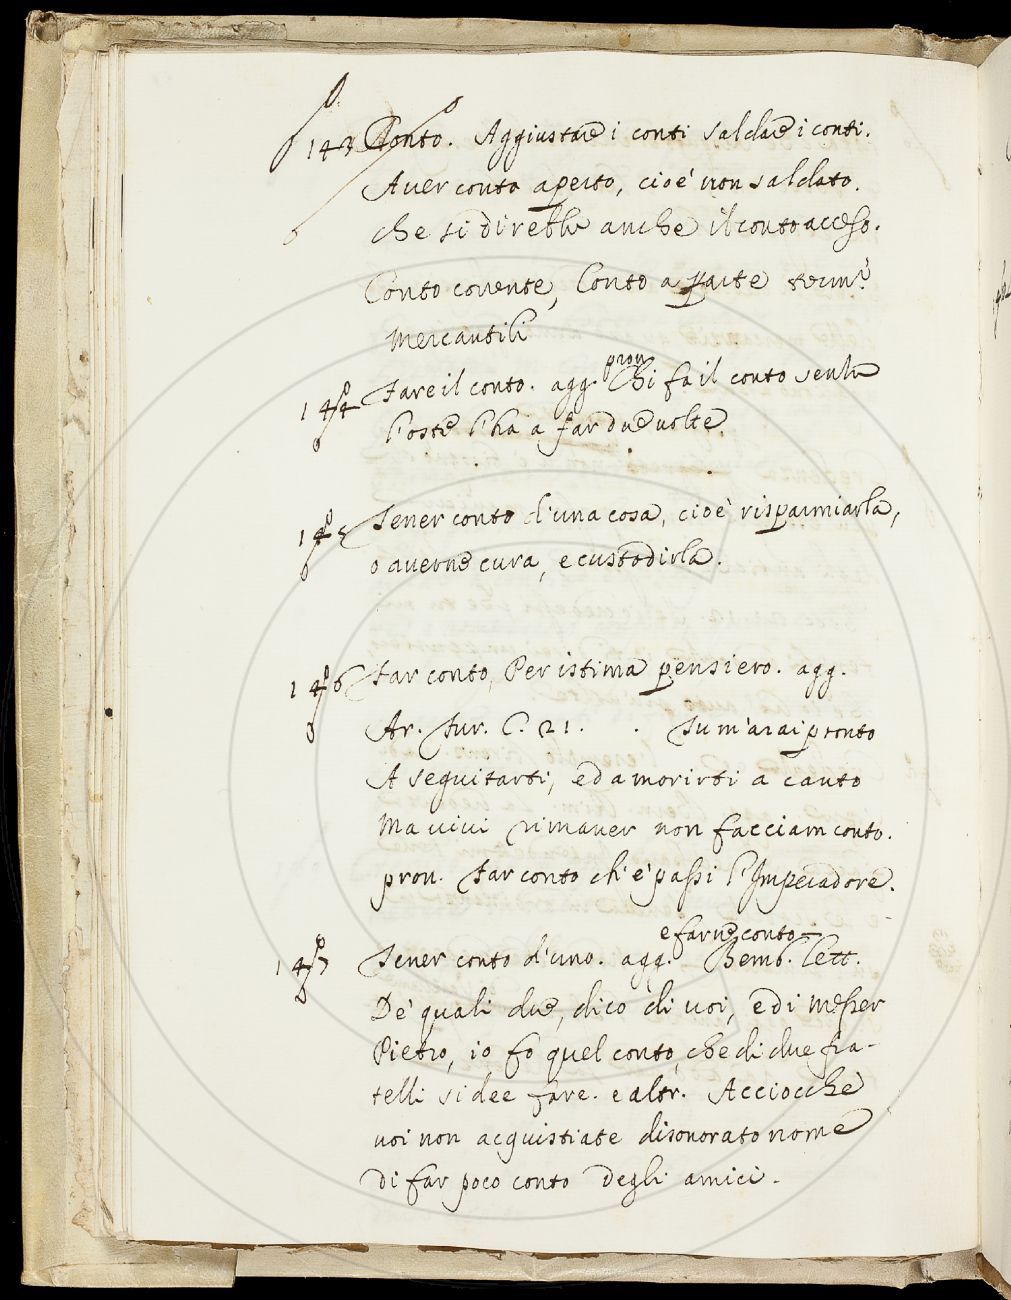 143 Conto. Aggiustare i conti saldare i conti.
Auer conto aperto, cioè non saldato.
che si direbbe anche il conto acceso.
Conto corrente, Conto a parte term.
mercantili
144 Fare il conto. agg. prou. Chi fa il conto senza
l'oste l'ha a far due uolte.
145 Tener conto d'una cosa, cioè risparmiarla,
o auerne cura, e custodirla.
146 Far conto, Per istima pensiero. agg.
Ar. Fur. C. 21. Tu m'arai pronto
A seguitarti, ed a morirti a canto
Ma uiui rimaner non facciam conto.
prou. Far conto ch'e' passi l'Imperadore.
e farne conto
147 Tener conto d'uno. agg. Bemb. lett.
De' quali due, dico di uoi, e di Messer
Pietro, io fo quel conto, che di due fra-
telli si dee fare. e altr. Acciocchè
uoi non acquistiate disonorato nome
di far poco conto degli amici.